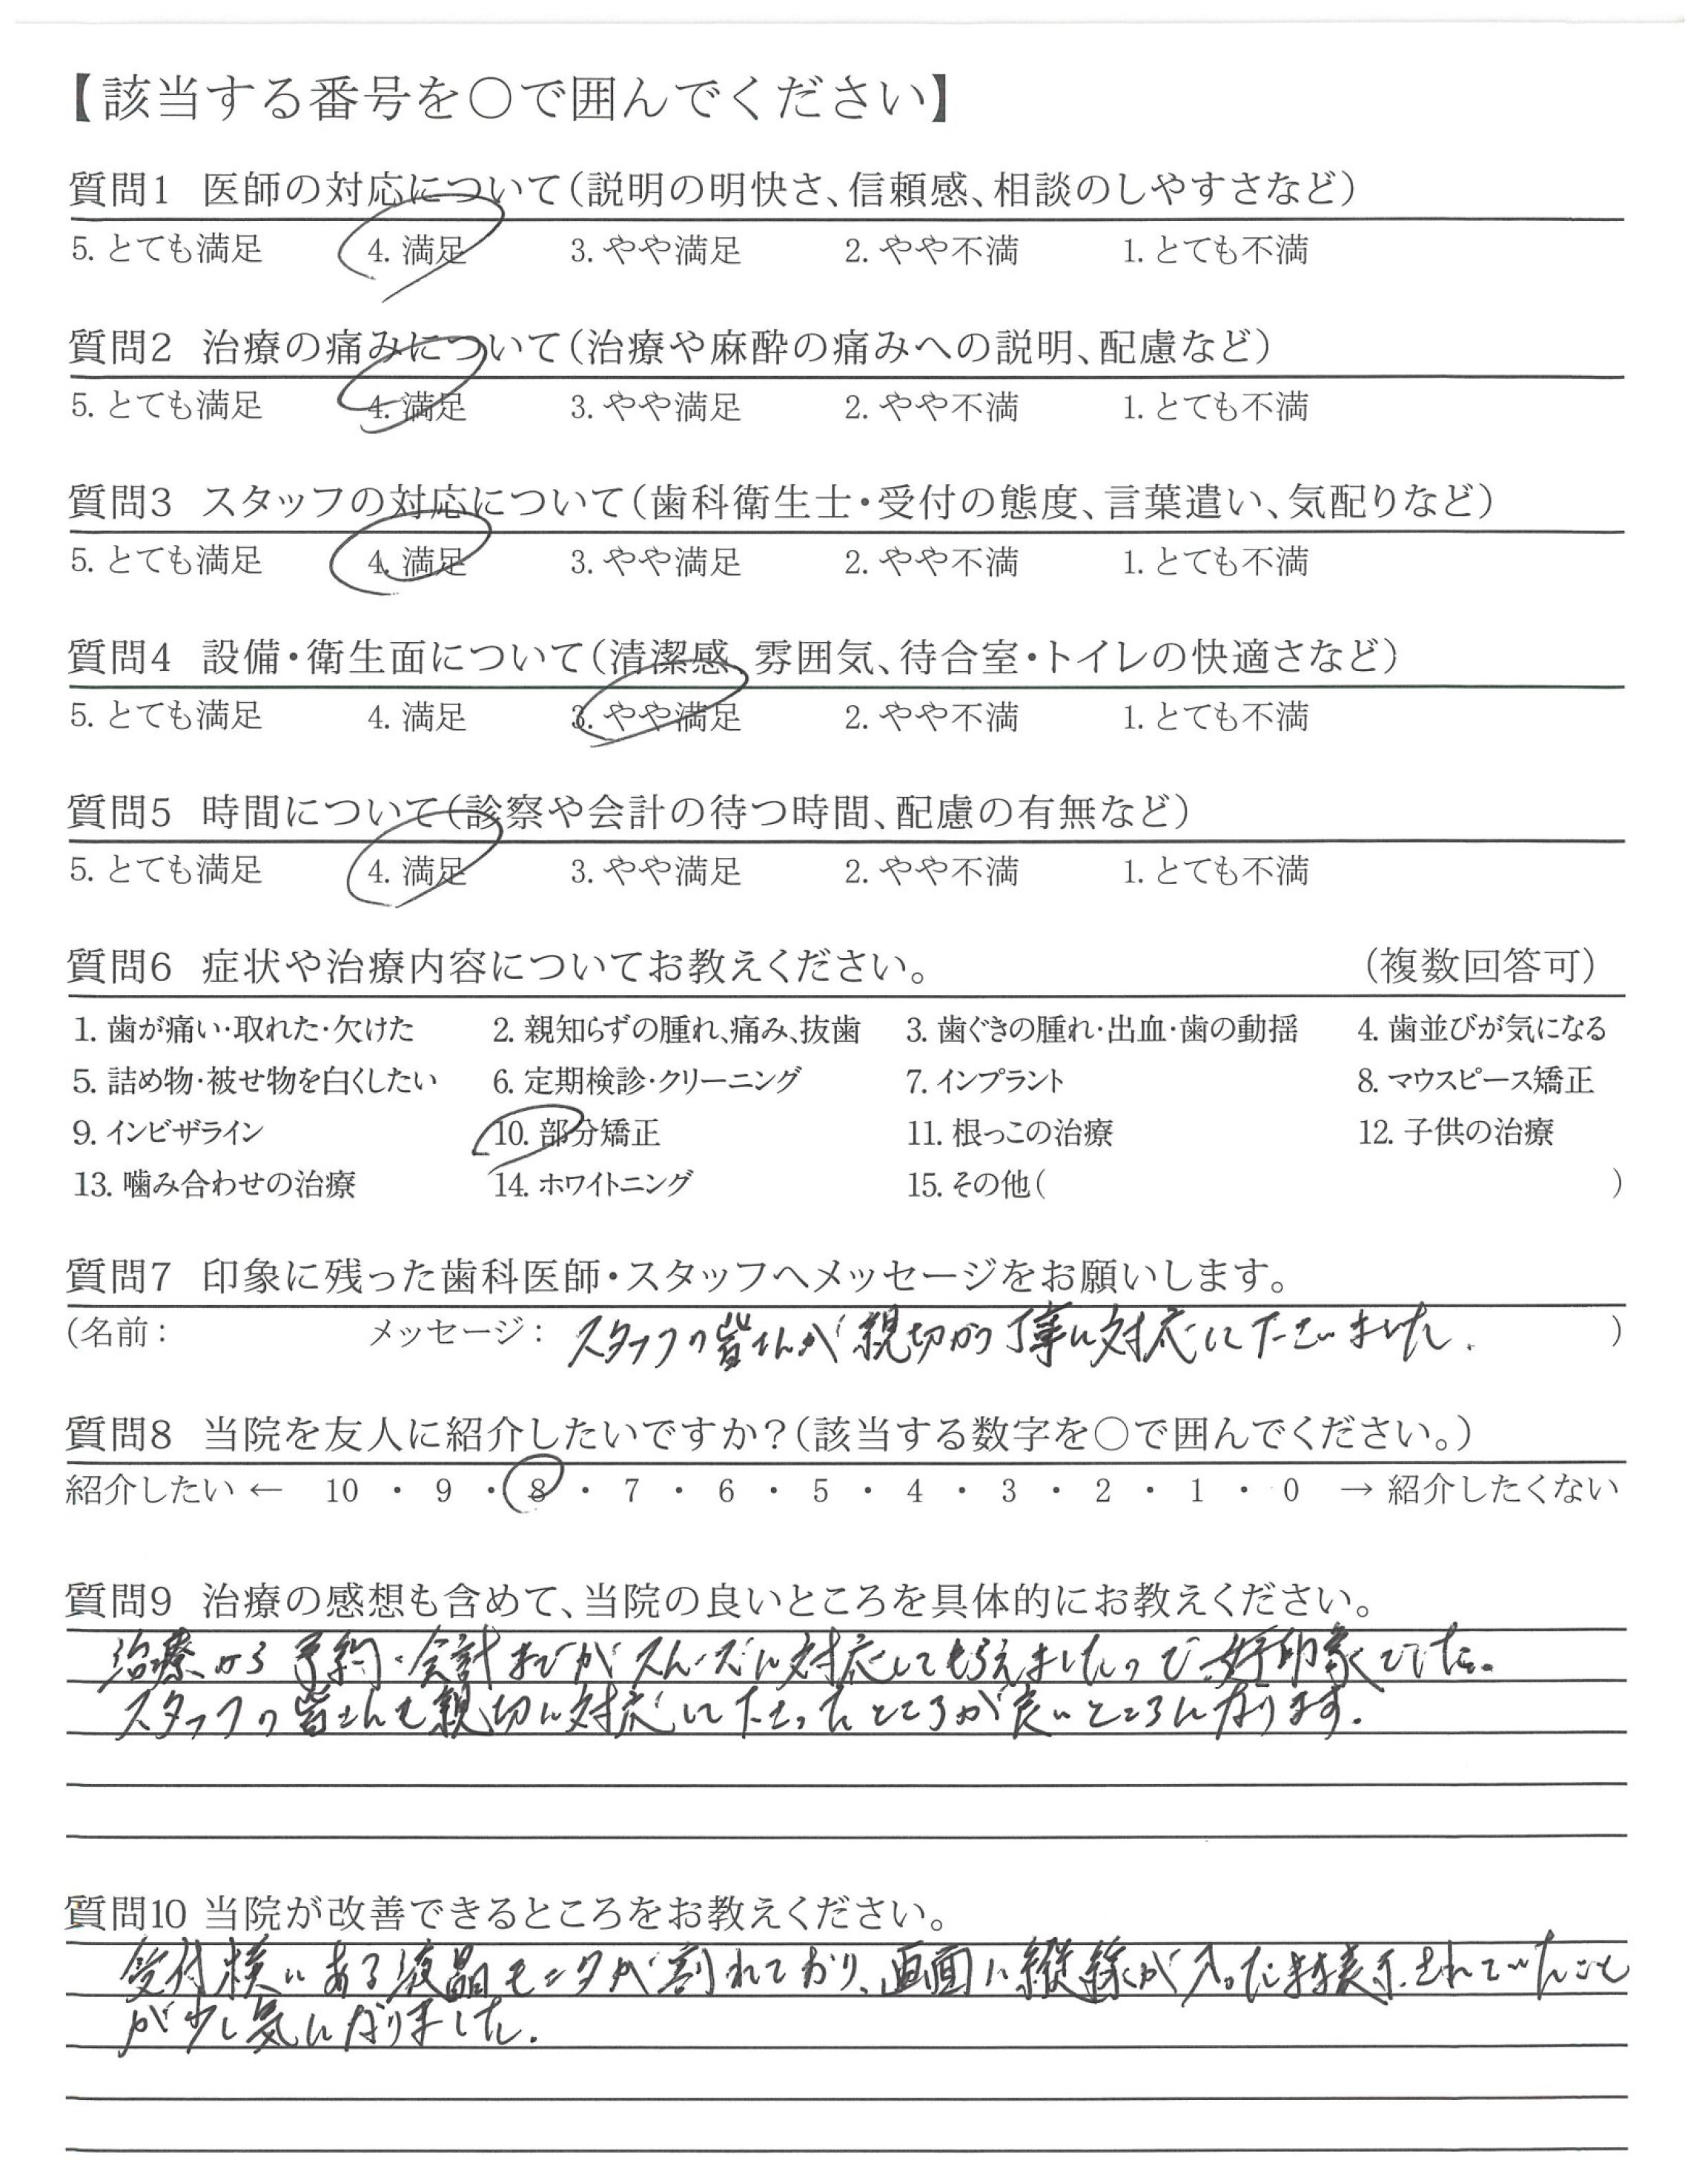 【該当する番号を○で囲んでください】
質問1 医師の対応について（説明の明快さ、信頼感、相談のしやすさなど）
5. とても満足 4. 満足 3. やや満足 2. やや不満 1. とても不満
質問2 治療の痛みについて（治療や麻酔の痛みへの説明、配慮など）
5. とても満足 4. 満足 3. やや満足 2. やや不満 1. とても不満
質問3 スタッフの対応について（歯科衛生士・受付の態度、言葉遣い、気配りなど）
5. とても満足 4. 満足 3. やや満足 2. やや不満 1. とても不満
質問4 設備・衛生面について（清潔感、雰囲気、待合室・トイレの快適さなど）
5. とても満足 4. 満足 3. やや満足 2. やや不満 1. とても不満
質問5 時間について（診察や会計の待つ時間、配慮の有無など）
5. とても満足 4. 満足 3. やや満足 2. やや不満 1. とても不満
質問6 症状や治療内容についてお教えください。 （複数回答可）
1. 歯が痛い・取れた・欠けた 2. 親知らずの腫れ、痛み、抜歯 3. 歯ぐきの腫れ・出血・歯の動揺 4. 歯並びが気になる
5. 詰め物・被せ物を白くしたい 6. 定期検診・クリーニング 7. インプラント 8. マウスピース矯正
9. インビザライン 10. 部分矯正 11. 根っこの治療 12. 子供の治療
13. 噛み合わせの治療 14. ホワイトニング 15. その他（ ）
質問7 印象に残った歯科医師・スタッフへメッセージをお願いします。
（名前： メッセージ： スタッフの皆さんが親切かつ丁寧に対応して下さいました. ）
質問8 当院を友人に紹介したいですか？（該当する数字を○で囲んでください。）
紹介したい ← 10 ・ 9 ・ 8 ・ 7 ・ 6 ・ 5 ・ 4 ・ 3 ・ 2 ・ 1 ・ 0 → 紹介したくない
質問9 治療の感想も含めて、当院の良いところを具体的にお教えください。
治療から予約・会計までがスムーズに対応してもらえましたので好印象でした。
スタッフの皆さんも親切に対応して下さったところが良いところになります.
質問10 当院が改善できるところをお教えください。
受付横にある液晶モニタが割れており、画面に縦線が入った表示されていたこと
が少し気になりました.